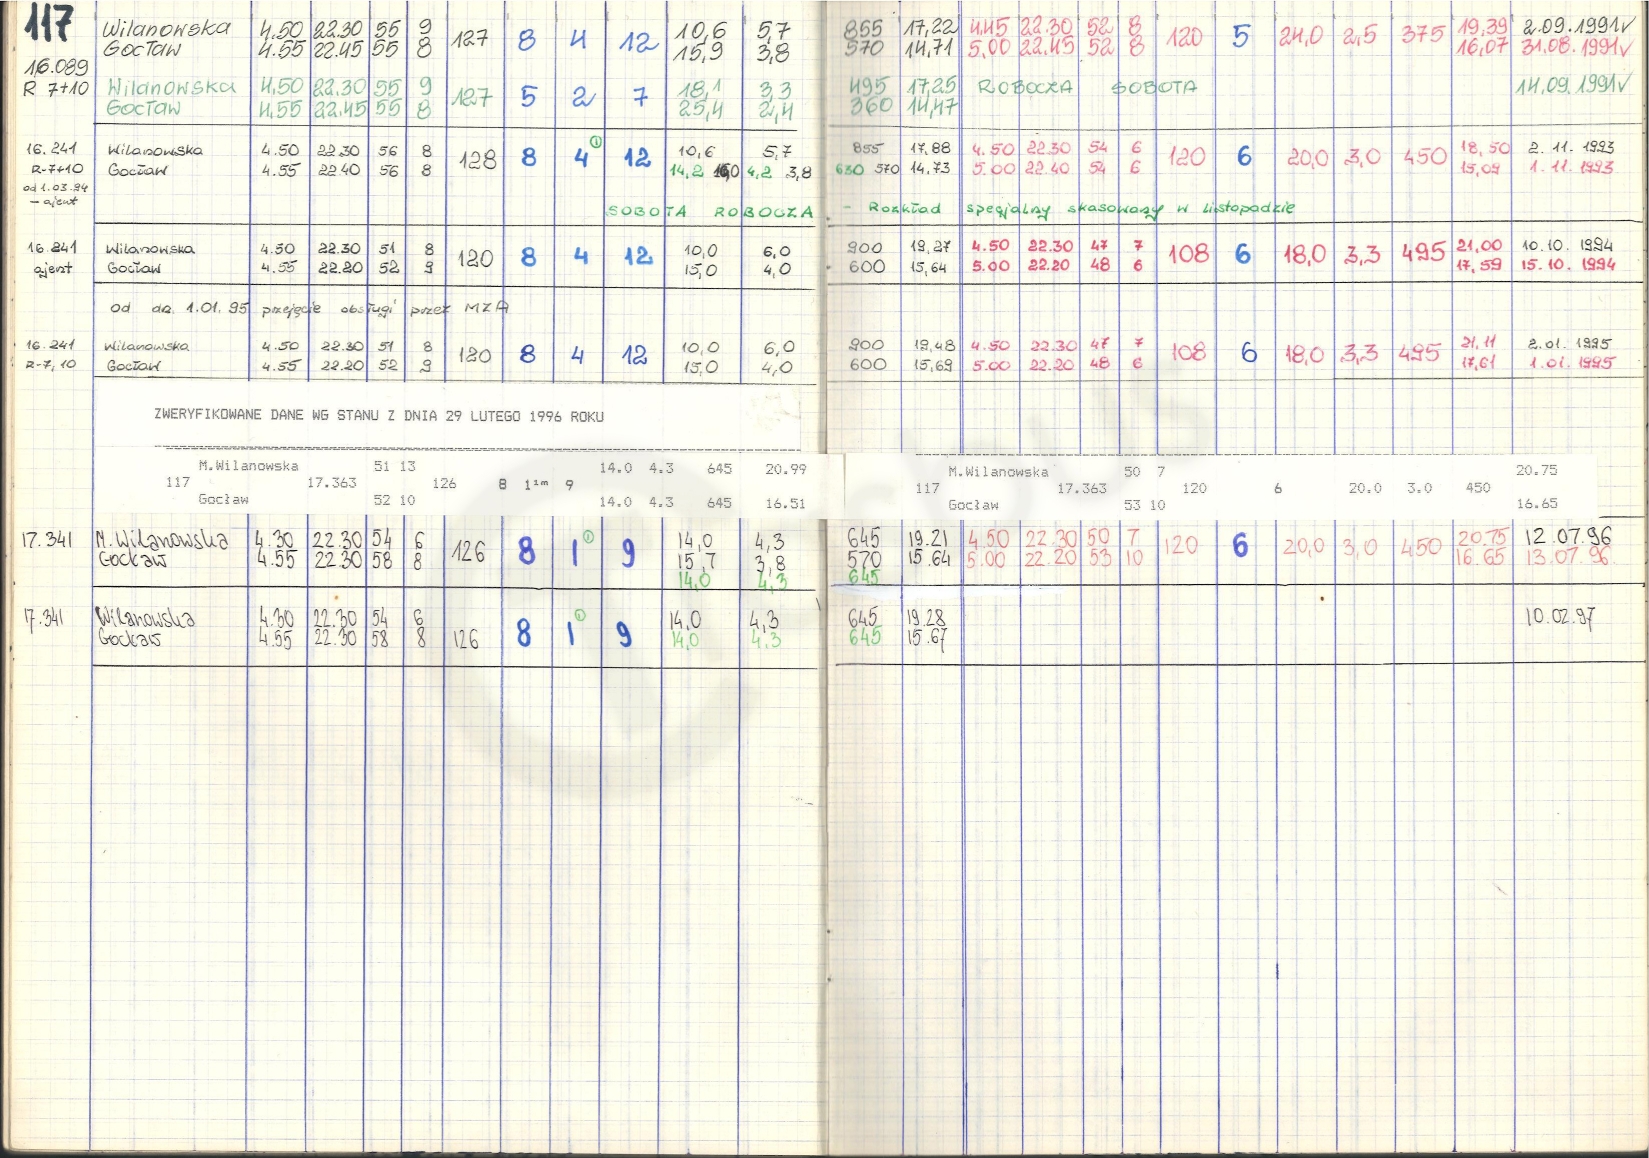 117 Wilanowska 4.50 22.30 55 9 127 8 4 12 10,6 5,7 855 17,22 4.45 22.30 52 8 120 5 24,0 2,5 375 19,39 2.09.1991
Gocław 4.55 22.45 55 8 15,9 3,8 570 14,71 5.00 22.45 52 8 16,07 31.08.1991
16.089
R 7+10 Wilanowska 4.50 22.30 55 9 127 5 2 7 18,1 3,3 495 17,25 ROBOCZA SOBOTA 14.09.1991
Gocław 4.55 22.45 55 8 25,4 2,4 360 14,47
16.241 Wilanowska 4.50 22.30 56 8 128 8 4 ① 12 10,6 5,7 855 17,88 4.50 22.30 54 6 120 6 20,0 3,0 450 18,50 2.11.1993
R-7+10 Gocław 4.55 22.40 56 8 14,2 4,2 3,8 630 570 14,73 5.00 22.40 54 6 15,09 1.11.1993
od 1.03.94
- ajent
SOBOTA ROBOCZA - Rozkład specjalny skasowany w listopadzie
16.241 Wilanowska 4.50 22.30 51 8 120 8 4 12 10,0 6,0 900 19,27 4.50 22.30 47 7 108 6 18,0 3,3 495 21,00 10.10.1994
ajent Gocław 4.55 22.20 52 9 15,0 4,0 600 15,64 5.00 22.20 48 6 17,59 15.10.1994
od dn. 1.01.95 przejęcie obsługi przez MZA
16.241 Wilanowska 4.50 22.30 51 8 120 8 4 12 10,0 6,0 900 19,48 4.50 22.30 47 7 108 6 18,0 3,3 495 21,11 2.01.1995
R-7,10 Gocław 4.55 22.20 52 9 15,0 4,0 600 15,69 5.00 22.20 48 6 17,61 1.01.1995
ZWERYFIKOWANE DANE WG STANU Z DNIA 29 LUTEGO 1996 ROKU
M.Wilanowska 51 13 14.0 4.3 645 20.99 M.Wilanowska 50 7 20.75
117 17.363 126 8 1¹ᵐ 9 117 17.363 120 6 20.0 3.0 450
Gocław 52 10 14.0 4.3 645 16.51 Gocław 53 10 16.65
17.341 M.Wilanowska 4.30 22.30 54 6 126 8 1 ① 9 14,0 4,3 645 19.21 4.50 22.30 50 7 120 6 20,0 3,0 450 20.75 12.07.96
Gocław 4.55 22.30 58 8 15,7 3,8 570 15.64 5.00 22.20 53 10 16.65 13.07.96
14,0 4,3 645
17.341 Wilanowska 4.30 22.30 54 6 126 8 1 ① 9 14,0 4,3 645 19.28 10.02.97
Gocław 4.55 22.30 58 8 14,0 4.3 645 15.67